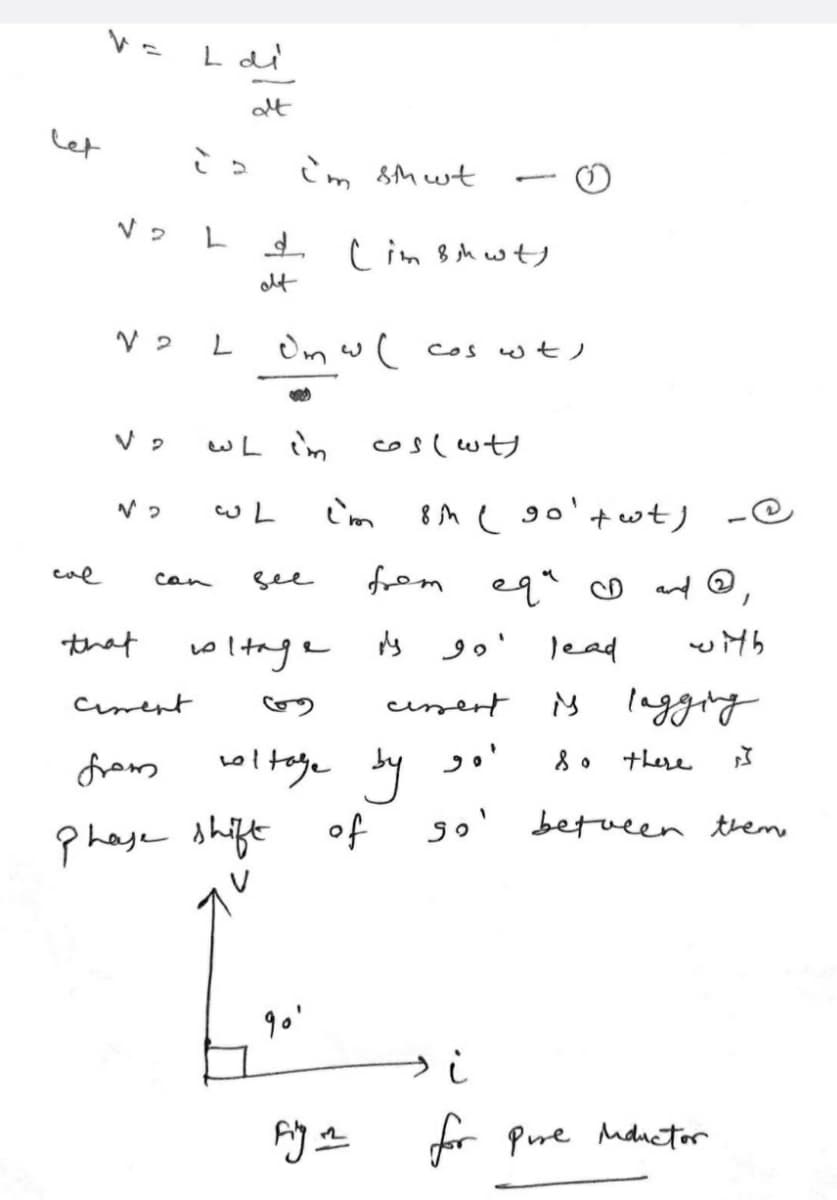 V = L di/dt
let i = im sin wt - ①
V = L d/dt (im sin wt)
V = L im w ( cos wt)
V = wL im cos(wt)
V = wL im sin ( 90' + wt) - ②
we can see from eqn ① and ②,
that voltage is 90' lead with
current or current is lagging
from voltage by 90' so there is
phase shift of 90' between them
V
90'
i
Fig for pure inductor